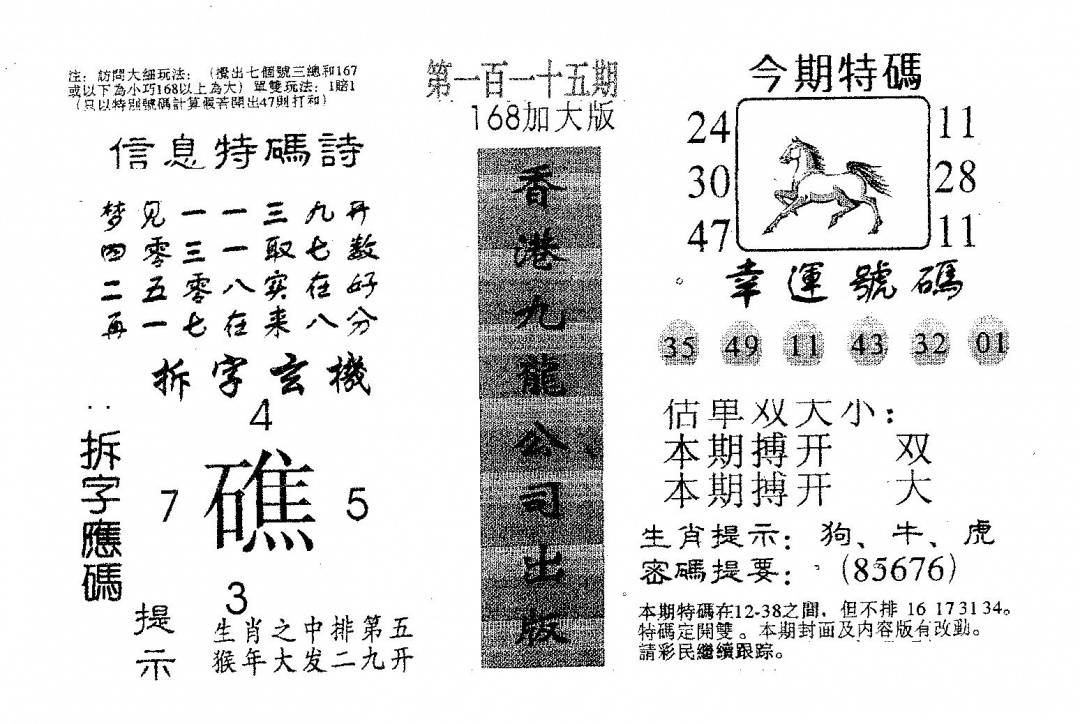 注：訪問大細玩法：（攪出七個號三總和167
或以下為小巧168以上為大）單雙玩法：1賠1
（只以特別號碼計算假若開出47則打和）
信息特碼詩
梦见一一三九开
四零三一取七数
二五零八实在好
再一七在来八分
拆字玄機
拆字應碼
4
7 礁 5
3
提示
生肖之中排第五
猴年大发二九开
第一百一十五期
168加大版
香港九龍公司出版
今期特碼
24 11
30 28
47 11
幸運號碼
35 49 11 43 32 01
估单双大小：
本期搏开 双
本期搏开 大
生肖提示：狗、牛、虎
密碼提要：（85676）
本期特碼在12-38之間，但不排 16 17 31 34。
特碼定開雙。本期封面及内容版有改動。
請彩民繼續跟踪。